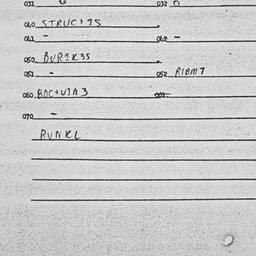 031 032
040 STRUC175
041 - 042 -
050 BVR1K35
051 - 052 RIBM7
060 BOC+VIA3
070 -
RUNKL